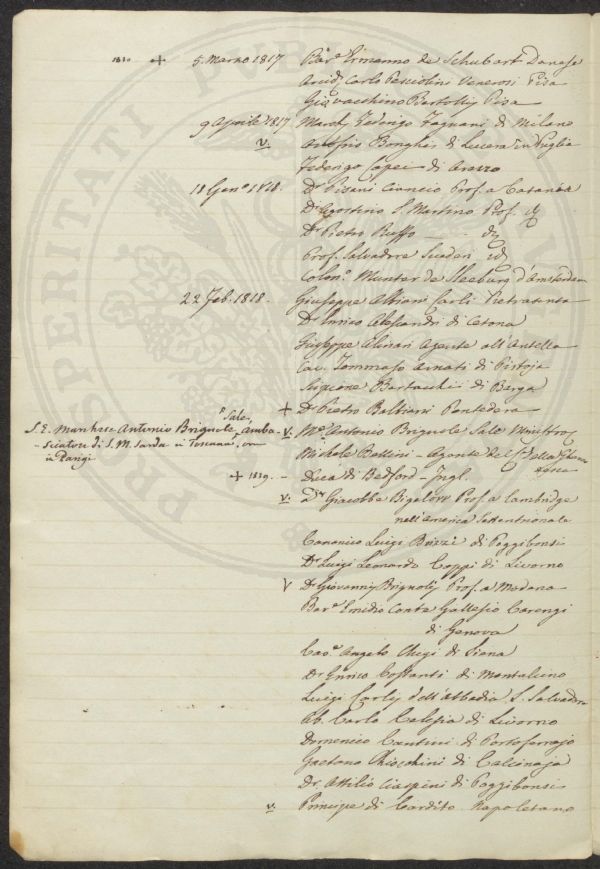 1830 + 5. Marzo 1817 Bar.e Ermanno de Schubart Danese
Carlo Pesciolini Venerosi Pisa
Giovacchino Bartolij Pisa
9 Aprile 1817 March. Federigo Fagnani di Milano
v. Onofrio Bonghi di Lucera in Puglia
Federigo Capei di Arezzo
18 Genn.o 1818. Dr. Pisani Ciancio Prof. a Catania
Dr. Agostino S. Martino Prof.
Dr. Pietro Ruffo - -
Prof. Salvadore Scuderi id
Colon.o Munter de d'Amsterdam
22 Feb. 1818. Giuseppe Albiani Carli Pietrasanta
Dr. Enrico Alessandri di Cetona
Giuseppe Alinari Agente all'Antella
Cav. Tommaso Amati di Pistoja
Scipione Bertacchi di Barga
+ Dr. Pietro Beltrami Pontedera
Sale
S. E. Marchese Antonio Brignole, Amba-
sciatore di S. M. Sarda in Toscana, ora
a Parigi
v. M.e Antonio Brignole Sale Ministro
Michele Bettini - Agente del della
+ 1839. - Duca di Bedford - Ingl.
v. Giacobbe Bigelow Prof. a Cambridge
nell'America Settentrionale
Canonico Luigi Bozzi di Poggibonsi
Dr. Luigi Leonardo Coppi di Livorno
V Dr. Giovanni Brignoli Prof. a Modena
Bar.e Emidio Conte Gallesio Carengi
di Genova
Cav.e Angelo Chigi di Siena
Dr. Enrico Costanti di Montalcino
Luigi Carli dell'Abbadia S. Salvadore
Ab. Carlo Calesia di Livorno
Domenico Cantini di Portoferrajo
Gaetano Chiocchini di Calcinaja
Dr. Attilio Ciaspini di Poggibonsi
v. Principe di Cardito Napoletano